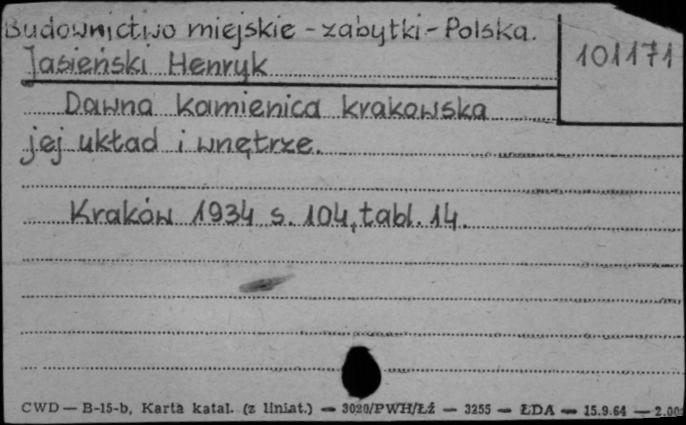 Budownictwo miejskie - zabytki - Polska.
101171
Jasieński Henryk
Dawna kamienica krakowska
jej układ i wnętrze.
Kraków 1934 s. 104, tabl. 14.
CWD — B-15-b, Karta katal. (z liniat.) — 3020/PWH/Łź — 3255 — ŁDA — 15.9.64 — 2.00